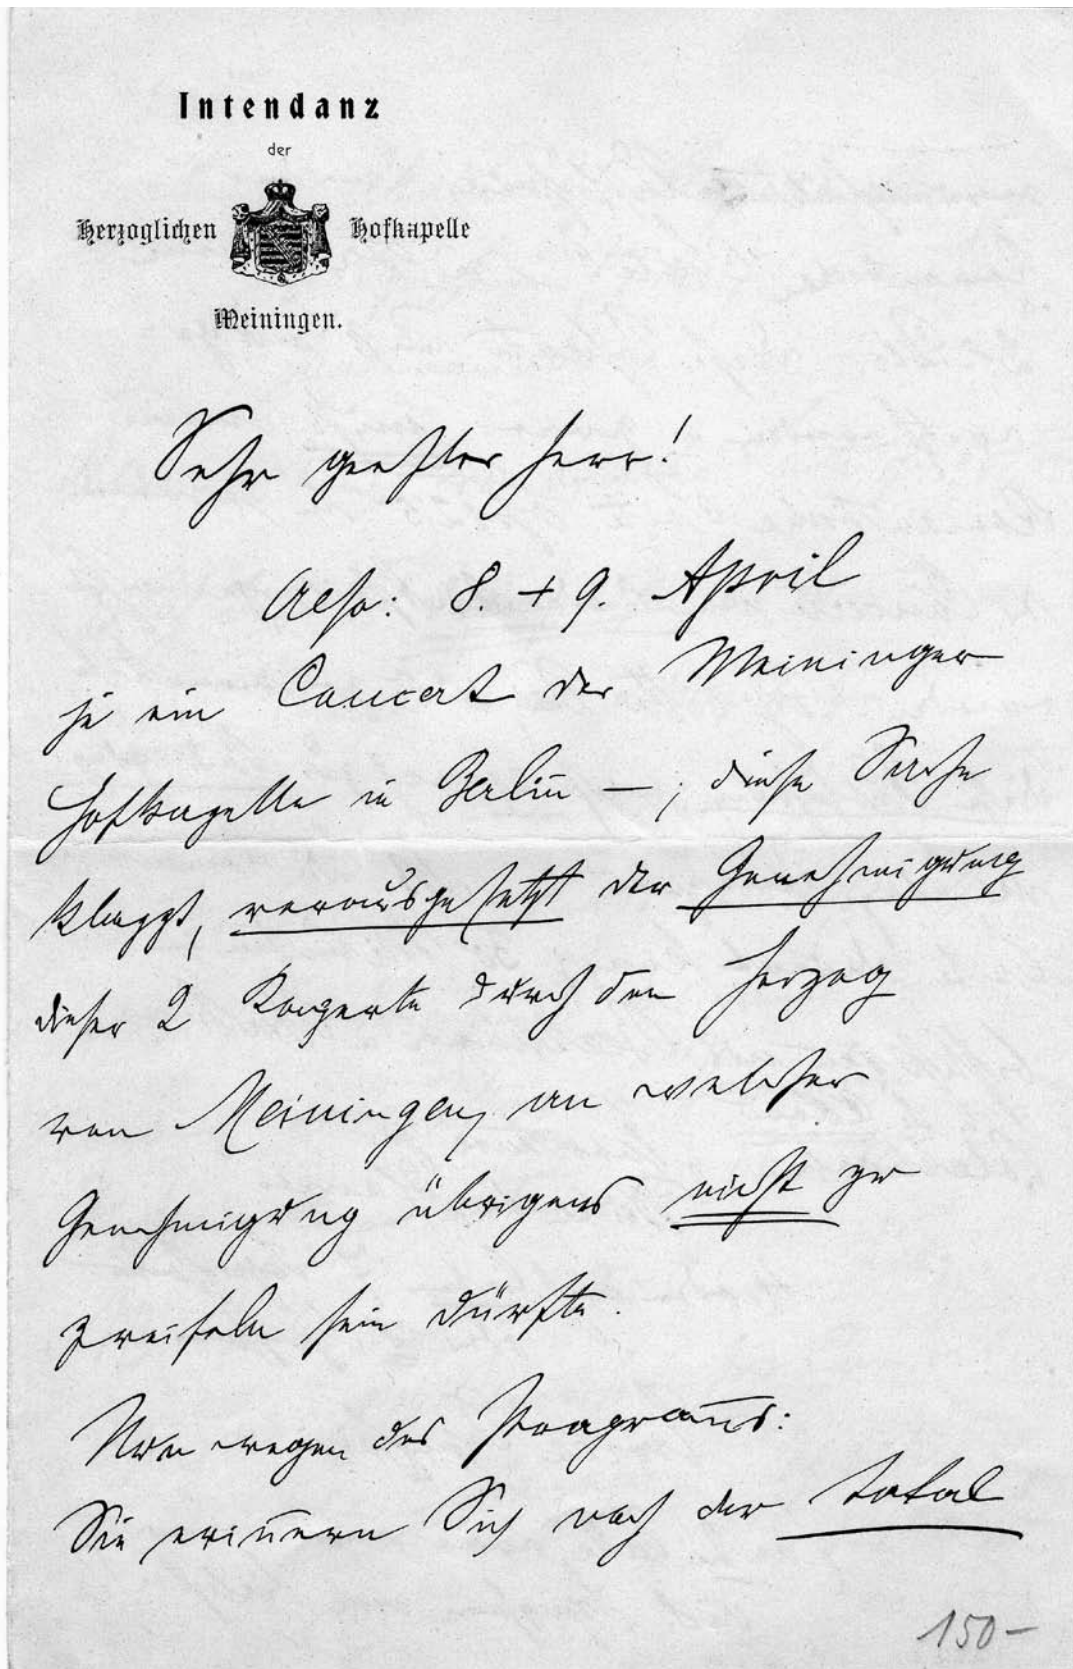 Intendanz
der
Herzoglichen Hofkapelle
Meiningen.
Sehr geehrter Herr!
Also: 8. + 9. April
je ein Concert der Meininger
Hofkapelle in Berlin –; diese Sache
klappt, vorausgesetzt der Genehmigung
dieser 2 Konzerte durch den Herzog
von Meiningen, an welcher
Genehmigung übrigens nicht zu
zweifeln sein dürfte.
Nun wegen des Program̅s:
Sie erin̅ern Sich noch der total
150–